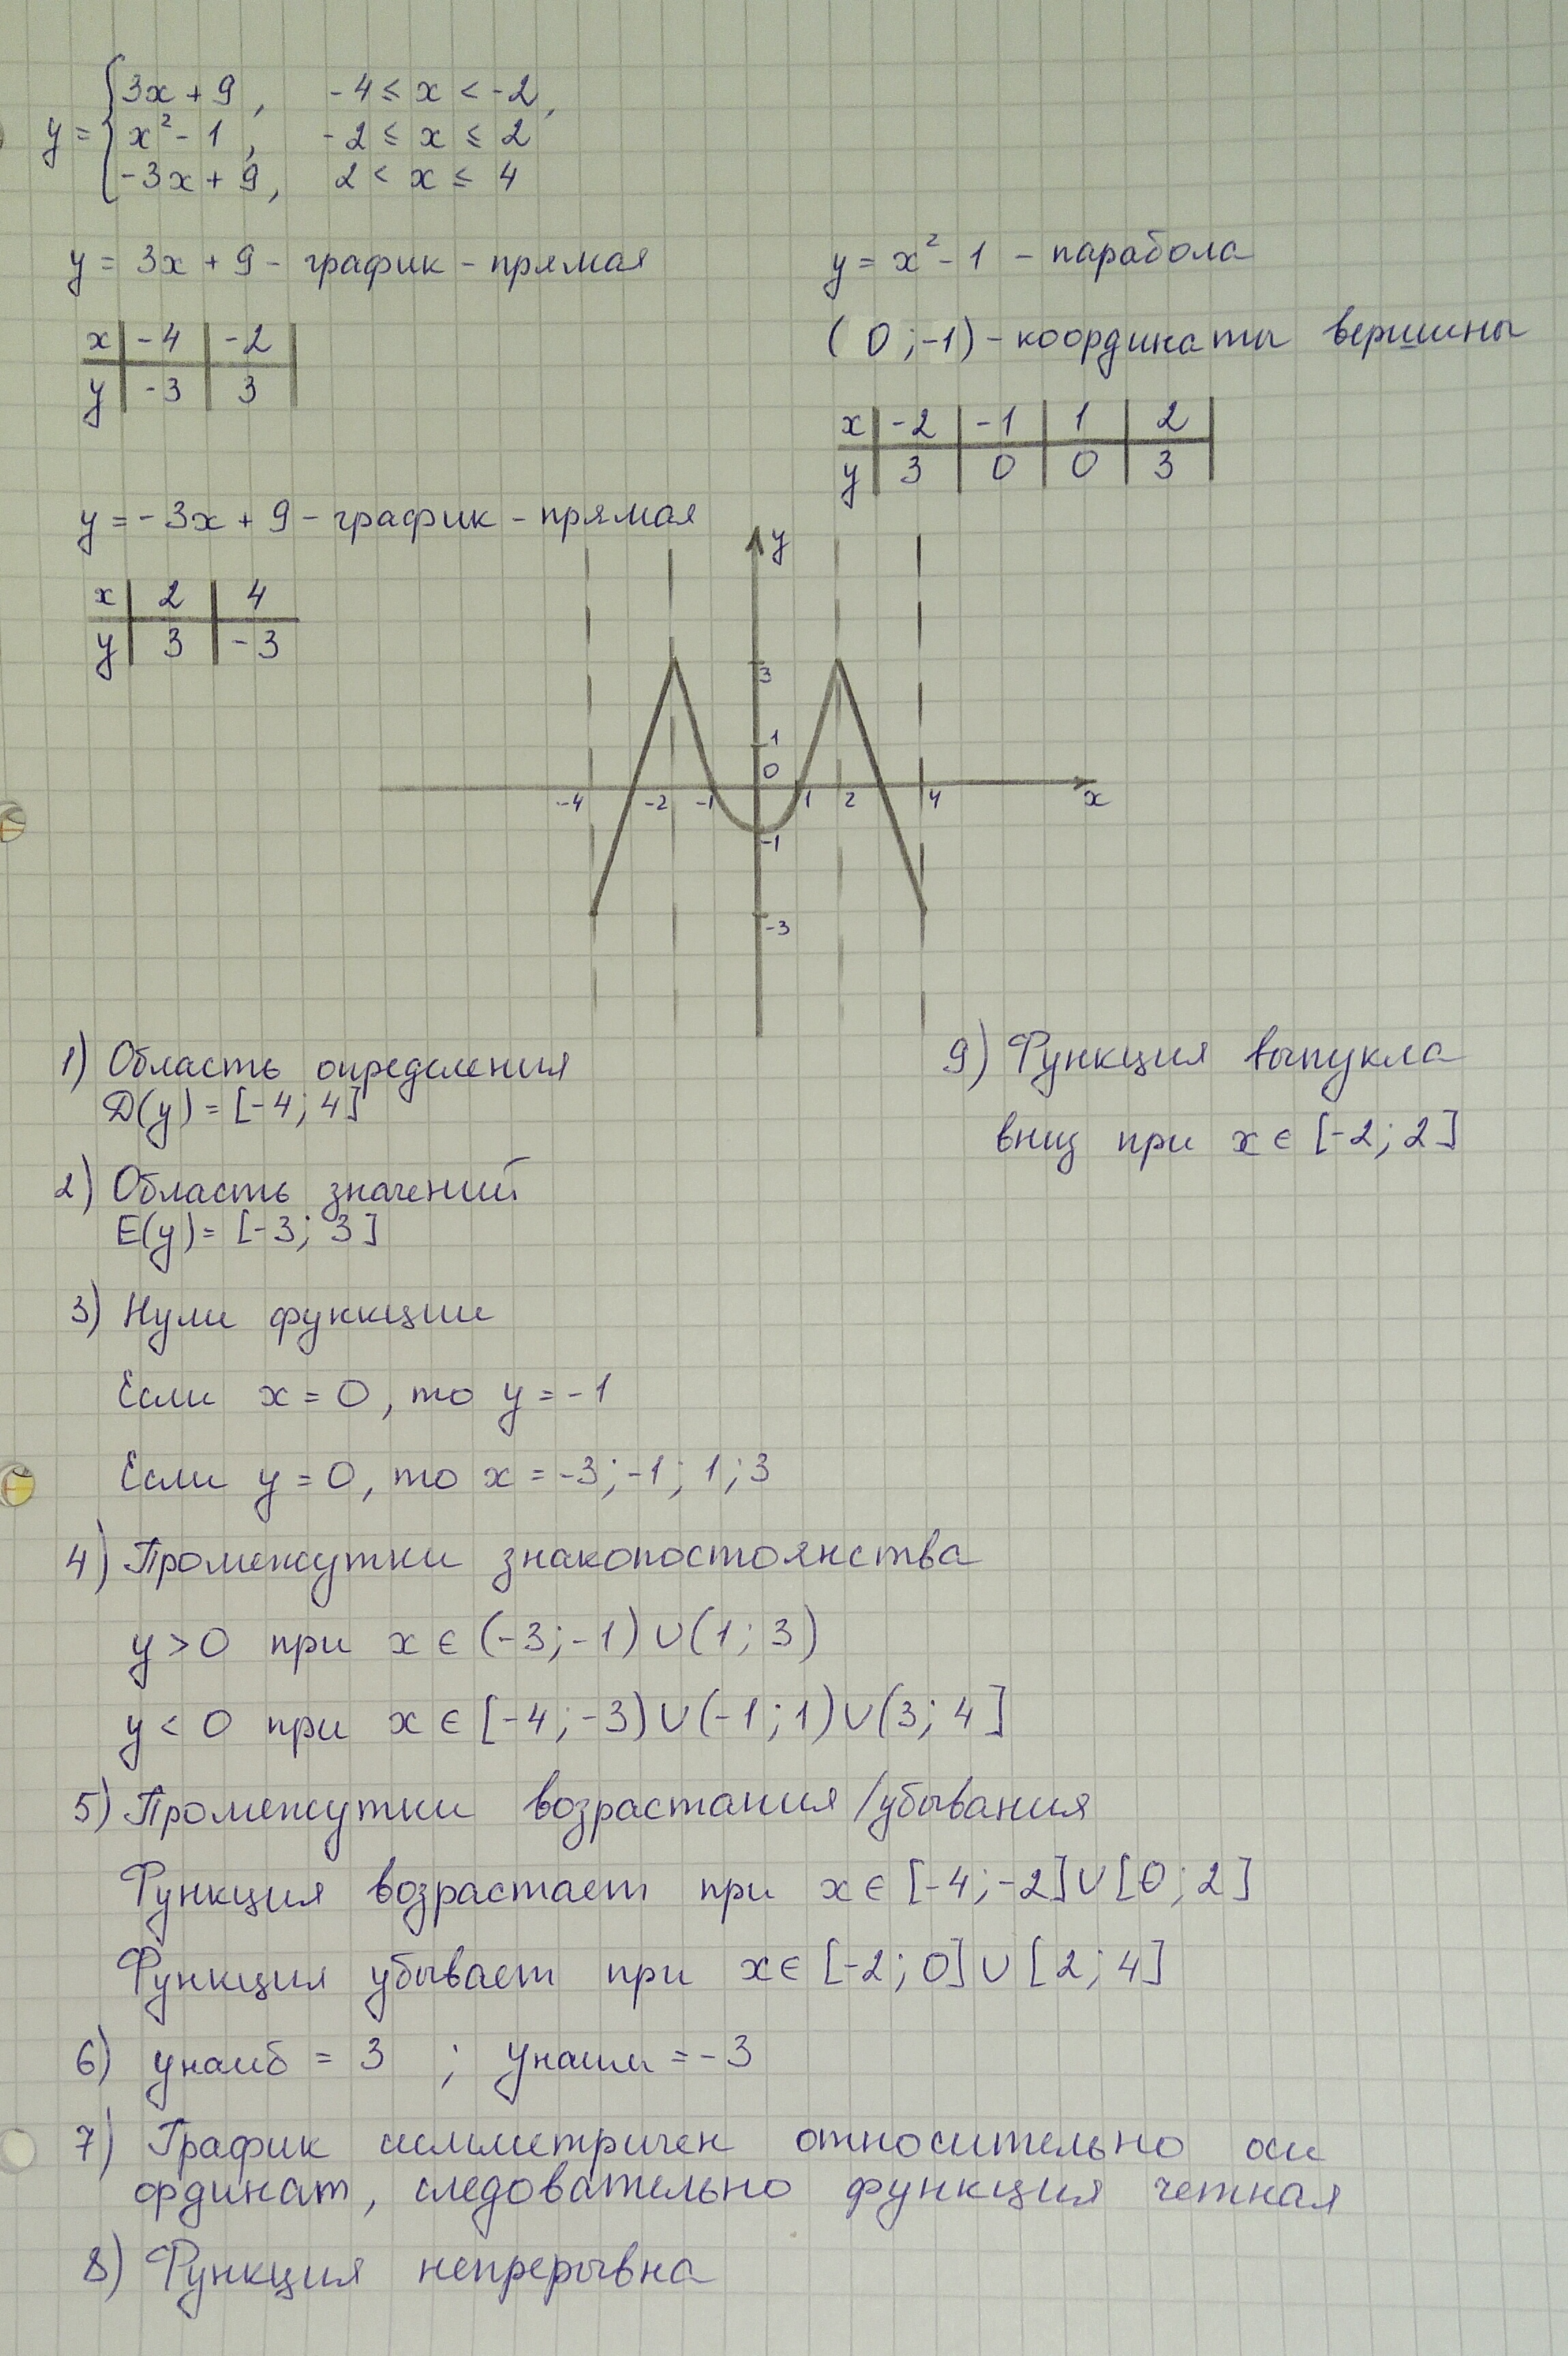 y = { 3x + 9, -4 ≤ x < -2,
x² - 1, -2 ≤ x ≤ 2
-3x + 9, 2 < x ≤ 4
y = 3x + 9 - график - прямая
x | -4 | -2 |
y | -3 | 3 |
y = x² - 1 - парабола
( 0 ; -1) - координаты вершины
x | -2 | -1 | 1 | 2 |
y | 3 | 0 | 0 | 3 |
y = -3x + 9 - график - прямая
x | 2 | 4
y | 3 | -3
y
3
1
0
-4 -2 -1 1 2 4 x
-1
-3
1) Область определения
D(y) = [-4; 4]
2) Область значений
E(y) = [-3; 3]
3) Нули функции
Если x = 0, то y = -1
Если y = 0, то x = -3; -1; 1; 3
4) Промежутки знакопостоянства
y > 0 при x ∈ (-3; -1) ∪ (1; 3)
y < 0 при x ∈ [-4; -3) ∪ (-1; 1) ∪ (3; 4]
5) Промежутки возрастания/убывания
Функция возрастает при x ∈ [-4; -2] ∪ [0; 2]
Функция убывает при x ∈ [-2; 0] ∪ [2; 4]
6) yнаиб = 3 ; yнаим = -3
7) График симметричен относительно оси
ординат, следовательно функция четная
8) Функция непрерывна
9) Функция выпукла
вниз при x ∈ [-2; 2]